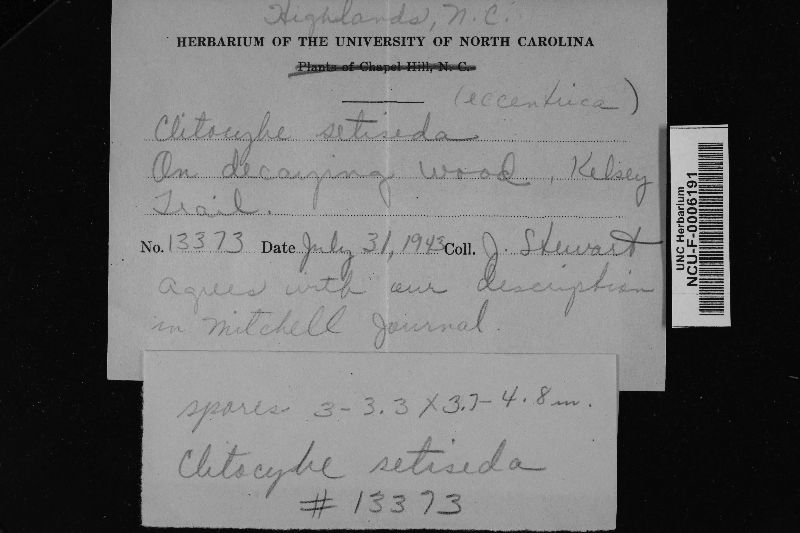 Highlands, N.C.
HERBARIUM OF THE UNIVERSITY OF NORTH CAROLINA
Plants of Chapel Hill, N. C.
(eccentrica)
Clitocybe setiseda
On decaying wood, Kelsey
Trail.
No. 13373 Date July 31, 1943 Coll. J. Stewart
agrees with our description
in Mitchell Journal.
spores 3-3.3 X 3.7-4.8 m.
Clitocybe setiseda
# 13373
UNC Herbarium
NCU-F-0006191